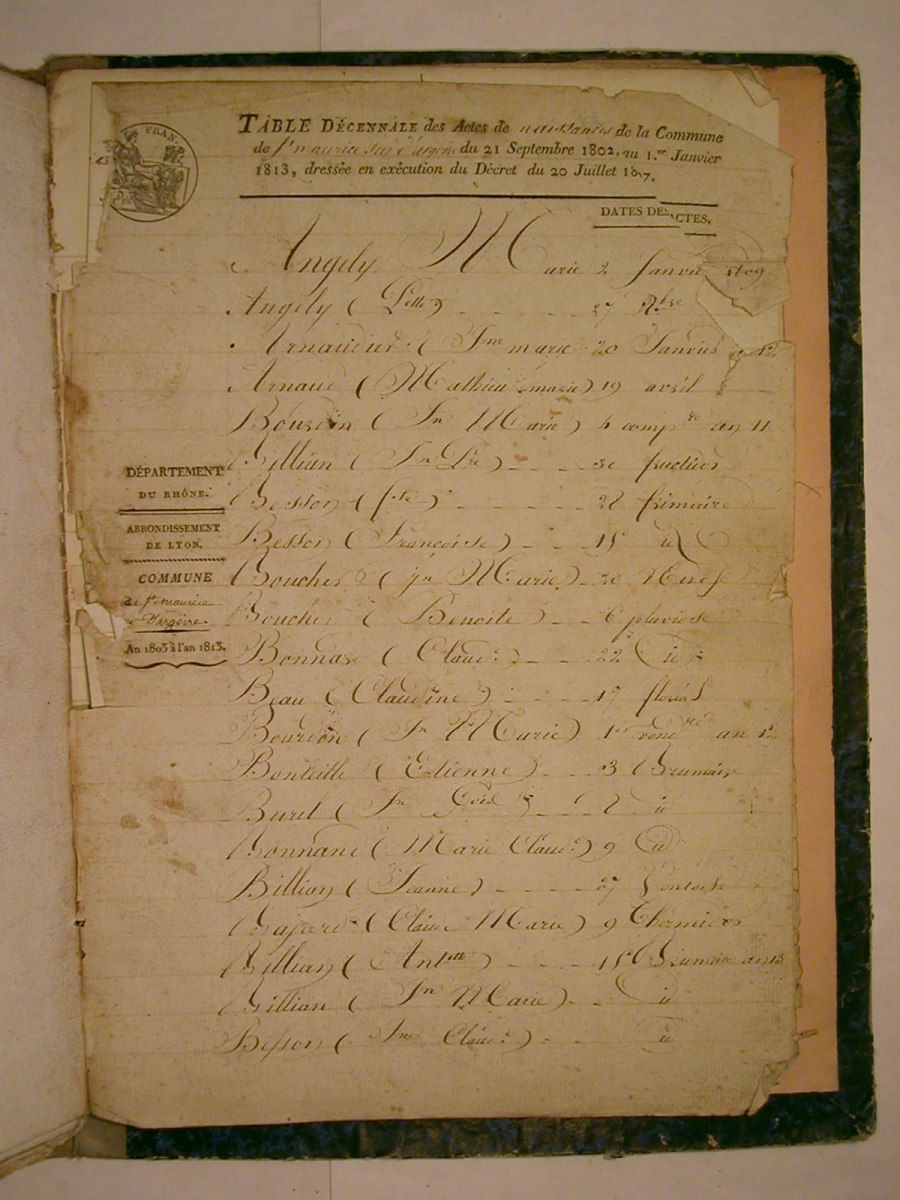 FRAN
TABLE DÉCENNALE des Actes de naissances de la Commune
de St maurice sur dargoire du 21 Septembre 1802, au 1.er Janvier
1813, dressée en exécution du Décret du 20 Juillet 1807.
DATES DES ACTES.
Angely Marie 2 Janvier 1809
Angely ( - - - 27 9bre
( Jne marie 20 Janvier
Arnaud (Mathieu marie) 19 avril
Bourdin (Jn Marie) 4 comp.re an 11
Billian (Jn Pre) - - - 30 fructidor
Besson ( - - - 28 frimaire
Besson (Françoise) - - 15 id
Boucher (Jn Marie) - 20
Boucher (Benoite) - - 6 pluviose
(Claude) - - - 22 id
Beau (Claudine) - - - 17 floréal
Bourdon (Jn Marie) 1er vend.re an 12
Bonteille (Etienne) - - 3 Brumaire
Buret (Jn id
Bonnand (Marie Claude) 9 id
Billian (Jeanne) - - - 27 Ventose
(Claude Marie) 9 Thermidor
Billian (Antte) - - - 15 Brumaire an 13
Billian (Jn Marie) - - id
Besson (Claude) - id
DÉPARTEMENT
DU RHÔNE.
ARRONDISSEMENT
DE LYON.
COMMUNE
de St maurice
Dargoire.
An 1803 à l'an 1813.